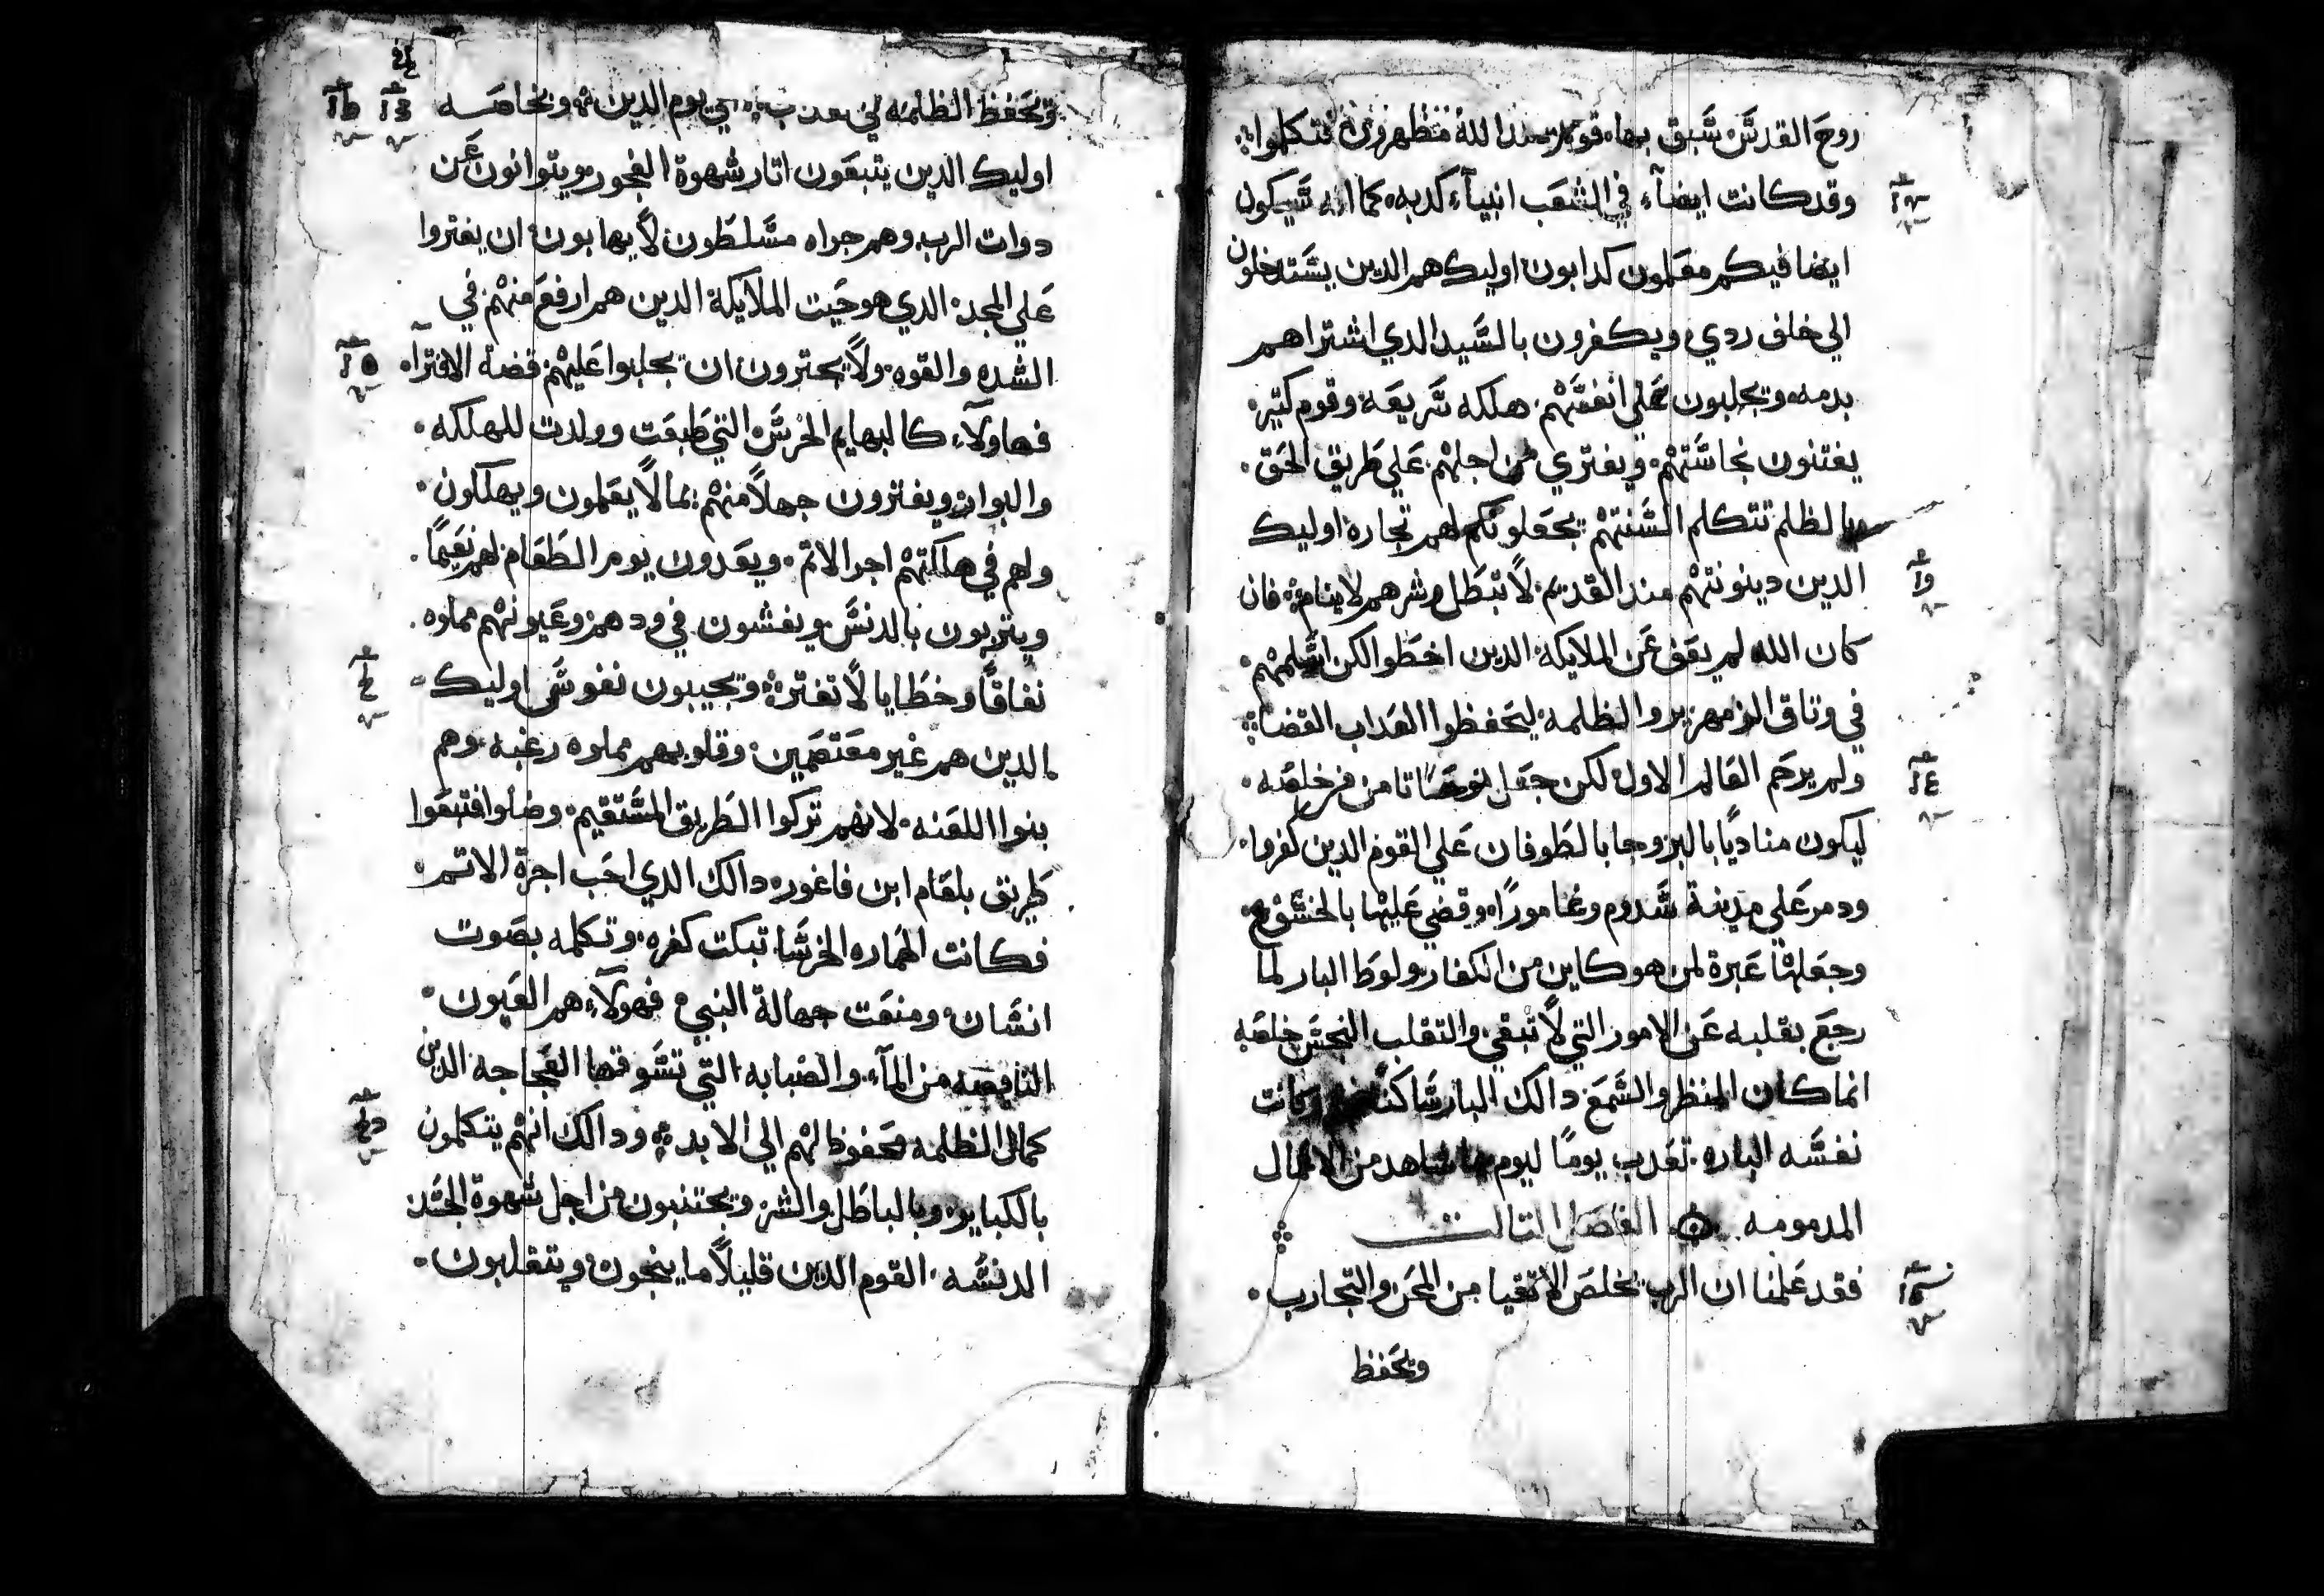 روح القدس سبق بها قوم منذ الله مظهرون فتكلموا
وقد كانت ايضآء في الشعب انبيآء كدبه كما انه سيكون
ايضا فيكم معلمون كدابون اوليك هم الدين يستدخلون
الي خلف ردي ويكفرون بالسيد الدي اشتراهم
بدمه ويجلبون علي انفسهم هلكه سريعه وقوم كتير
يفتنون نجاستهم ويفتري من اجلهم علي طريق الحق
بالظلم تتكلم السنتهم يجعلونكم لهم تجاره اوليك
الدين دينونتهم مند القديم لا تبطل وشرهم لا ينام فان
كان الله لم يعف عن الملايكة الدين اخطوا لكن اسلمهم
في وتاق الزمهرير والظلمه ليحفظوا العداب القضا
ولم يرحم العالم الاول لكن جعل نوحا تامن من خلقه
ليكون مناديا بالبر وجا بالطوفان علي القوم الدين كفروا
ودمر علي مدينة سدوم وغامورا وقضي عليها بالخسف
وجعلها عبرة لمن هو كاين من الكفار ولوط البار لما
رجع بقلبه عن الامور التي لا تبقي والتقلب النجس خلصه
انما كان المنظر والسمع دالك البار ساكنا وكانت
نفسه الباره تعدب يوما ليوم شاهد من الاعمال
المدمومه الفصل التالت
فقد علمنا ان الرب يخلص الاتقيا من المحن والتجارب
ويحفظ
ويحفظ الظلمه يوم الدين وبخاصه
اوليك الدين يتبعون اتار شهوة الفجور ويتوانون عن
دوات الرب وهم جراه مسلطون لا يهابون ان يفتروا
علي المجد الدي هو حيت الملايكة الدين هم ارفع منهم في
الشده والقوه ولا يجترون ان يجلبوا عليهم قضة الافترآ
فهاولآء كالبهايم الخرس التي طبعت وولدت للهلكه
والبوار ويفترون جهلا منهم بما لا يعلمون ويهلكون
ولهم في هلكتهم اجر الاتم ويعدون يوم الطعام لهم نعيما
ويتربون بالدنس ويفشون في ودهم وعيونهم مملوه
نفاقا وخطايا لا تفتر ويجيبون نفوس اوليك
الدين هم غير معتصمين وقلوبهم مملوه رغبه وهم
بنوا اللعنه لانهم تركوا الطريق المستقيم وضلوا فتبعوا
طريق بلعام ابن فاغور دالك الدي احب اجرة الاتم
فكانت الحماره الخرسا تبكت كفره وتكلمه بصوت
انسان ومنعت جهالة النبي فهولآء هم العيون
الناقصه من المآء والضبابه التي تسوقها العجاجه الدين
كمال الظلمه محفوظ لهم الي الابد ودالك انهم يتكلمون
بالكباير وبالباطل والشر ويجتنبون من اجل شهوة الجسد
الدنسه القوم الدين قليلا ما ينجون ويتقلبون